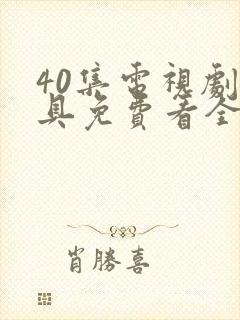 40集電視劇
具免費看全
肖勝喜